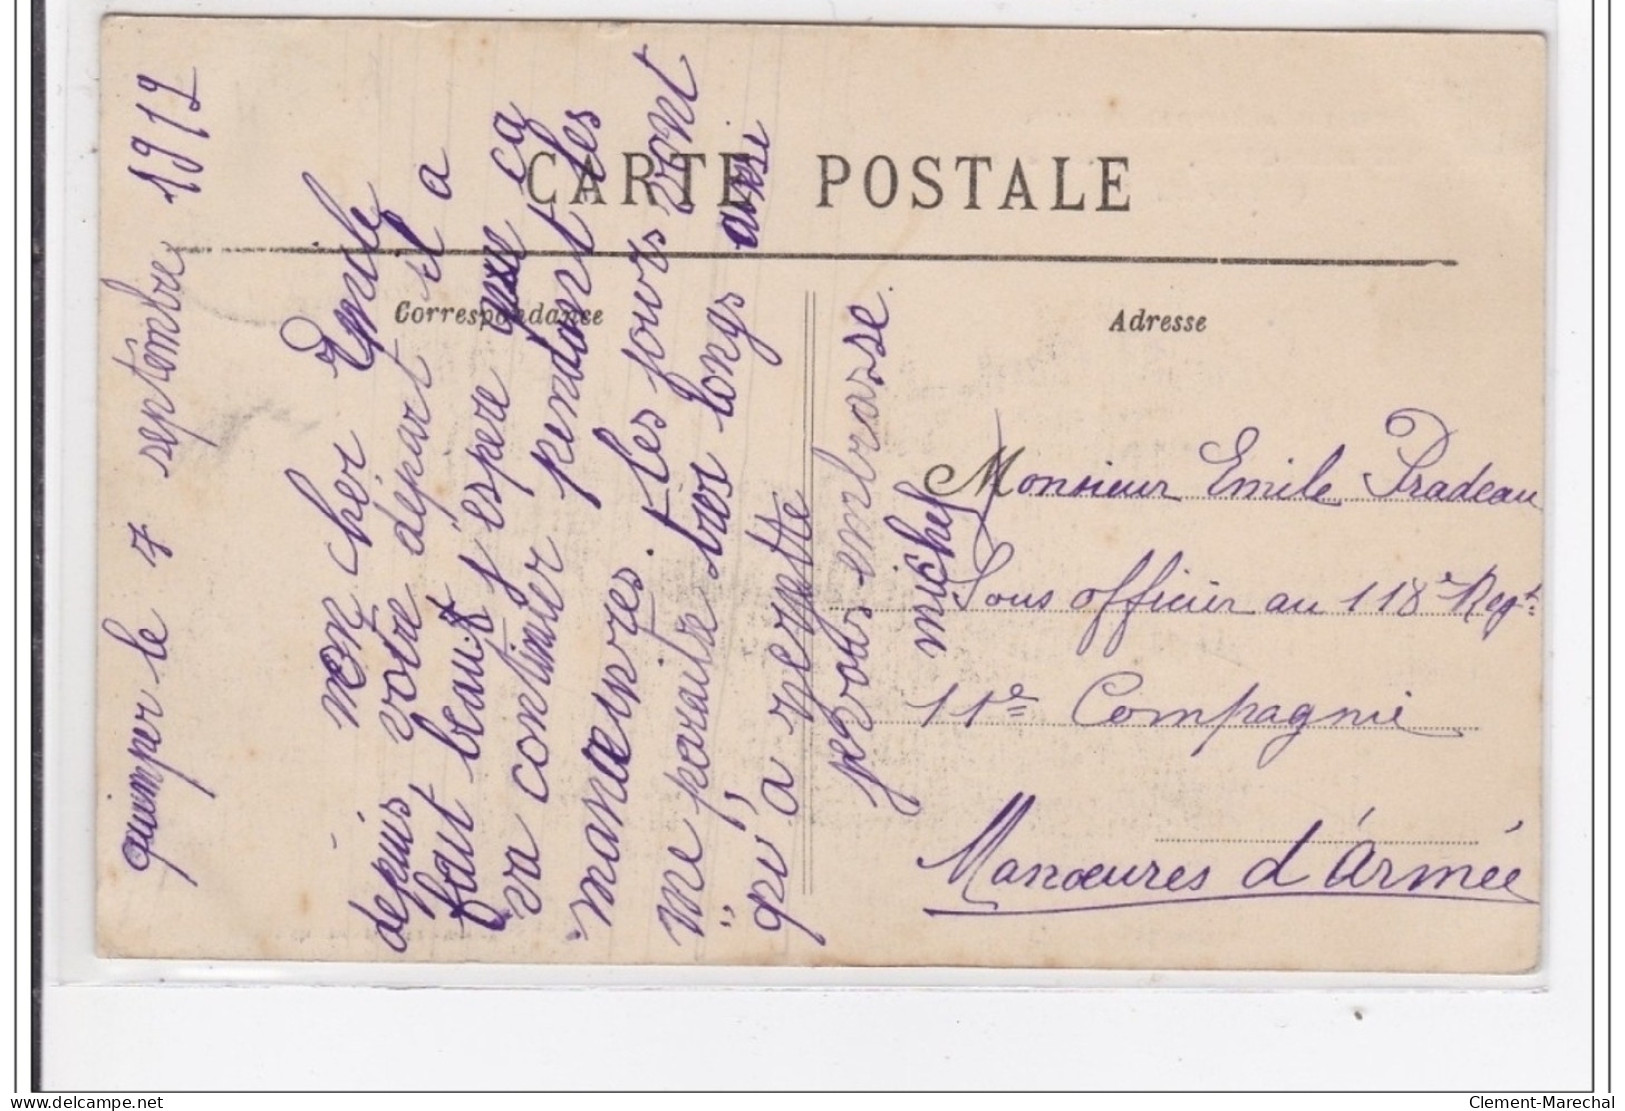 CARTE POSTALE
Correspondance
Adresse
quimper le 7 septembre 1912
mon cher Emile
depuis votre départ il a
fait beau j'espere que ca
va continuer pendant les
manœuvres. les jours vont
me paraitre tres longs ainsi
qu'a
je vous embrasse
michel
Monsieur Emile Pradeau
Sous officier au 118e Regt.
11e Compagnie
Manœuvres d'Armée
Clement-Marechal